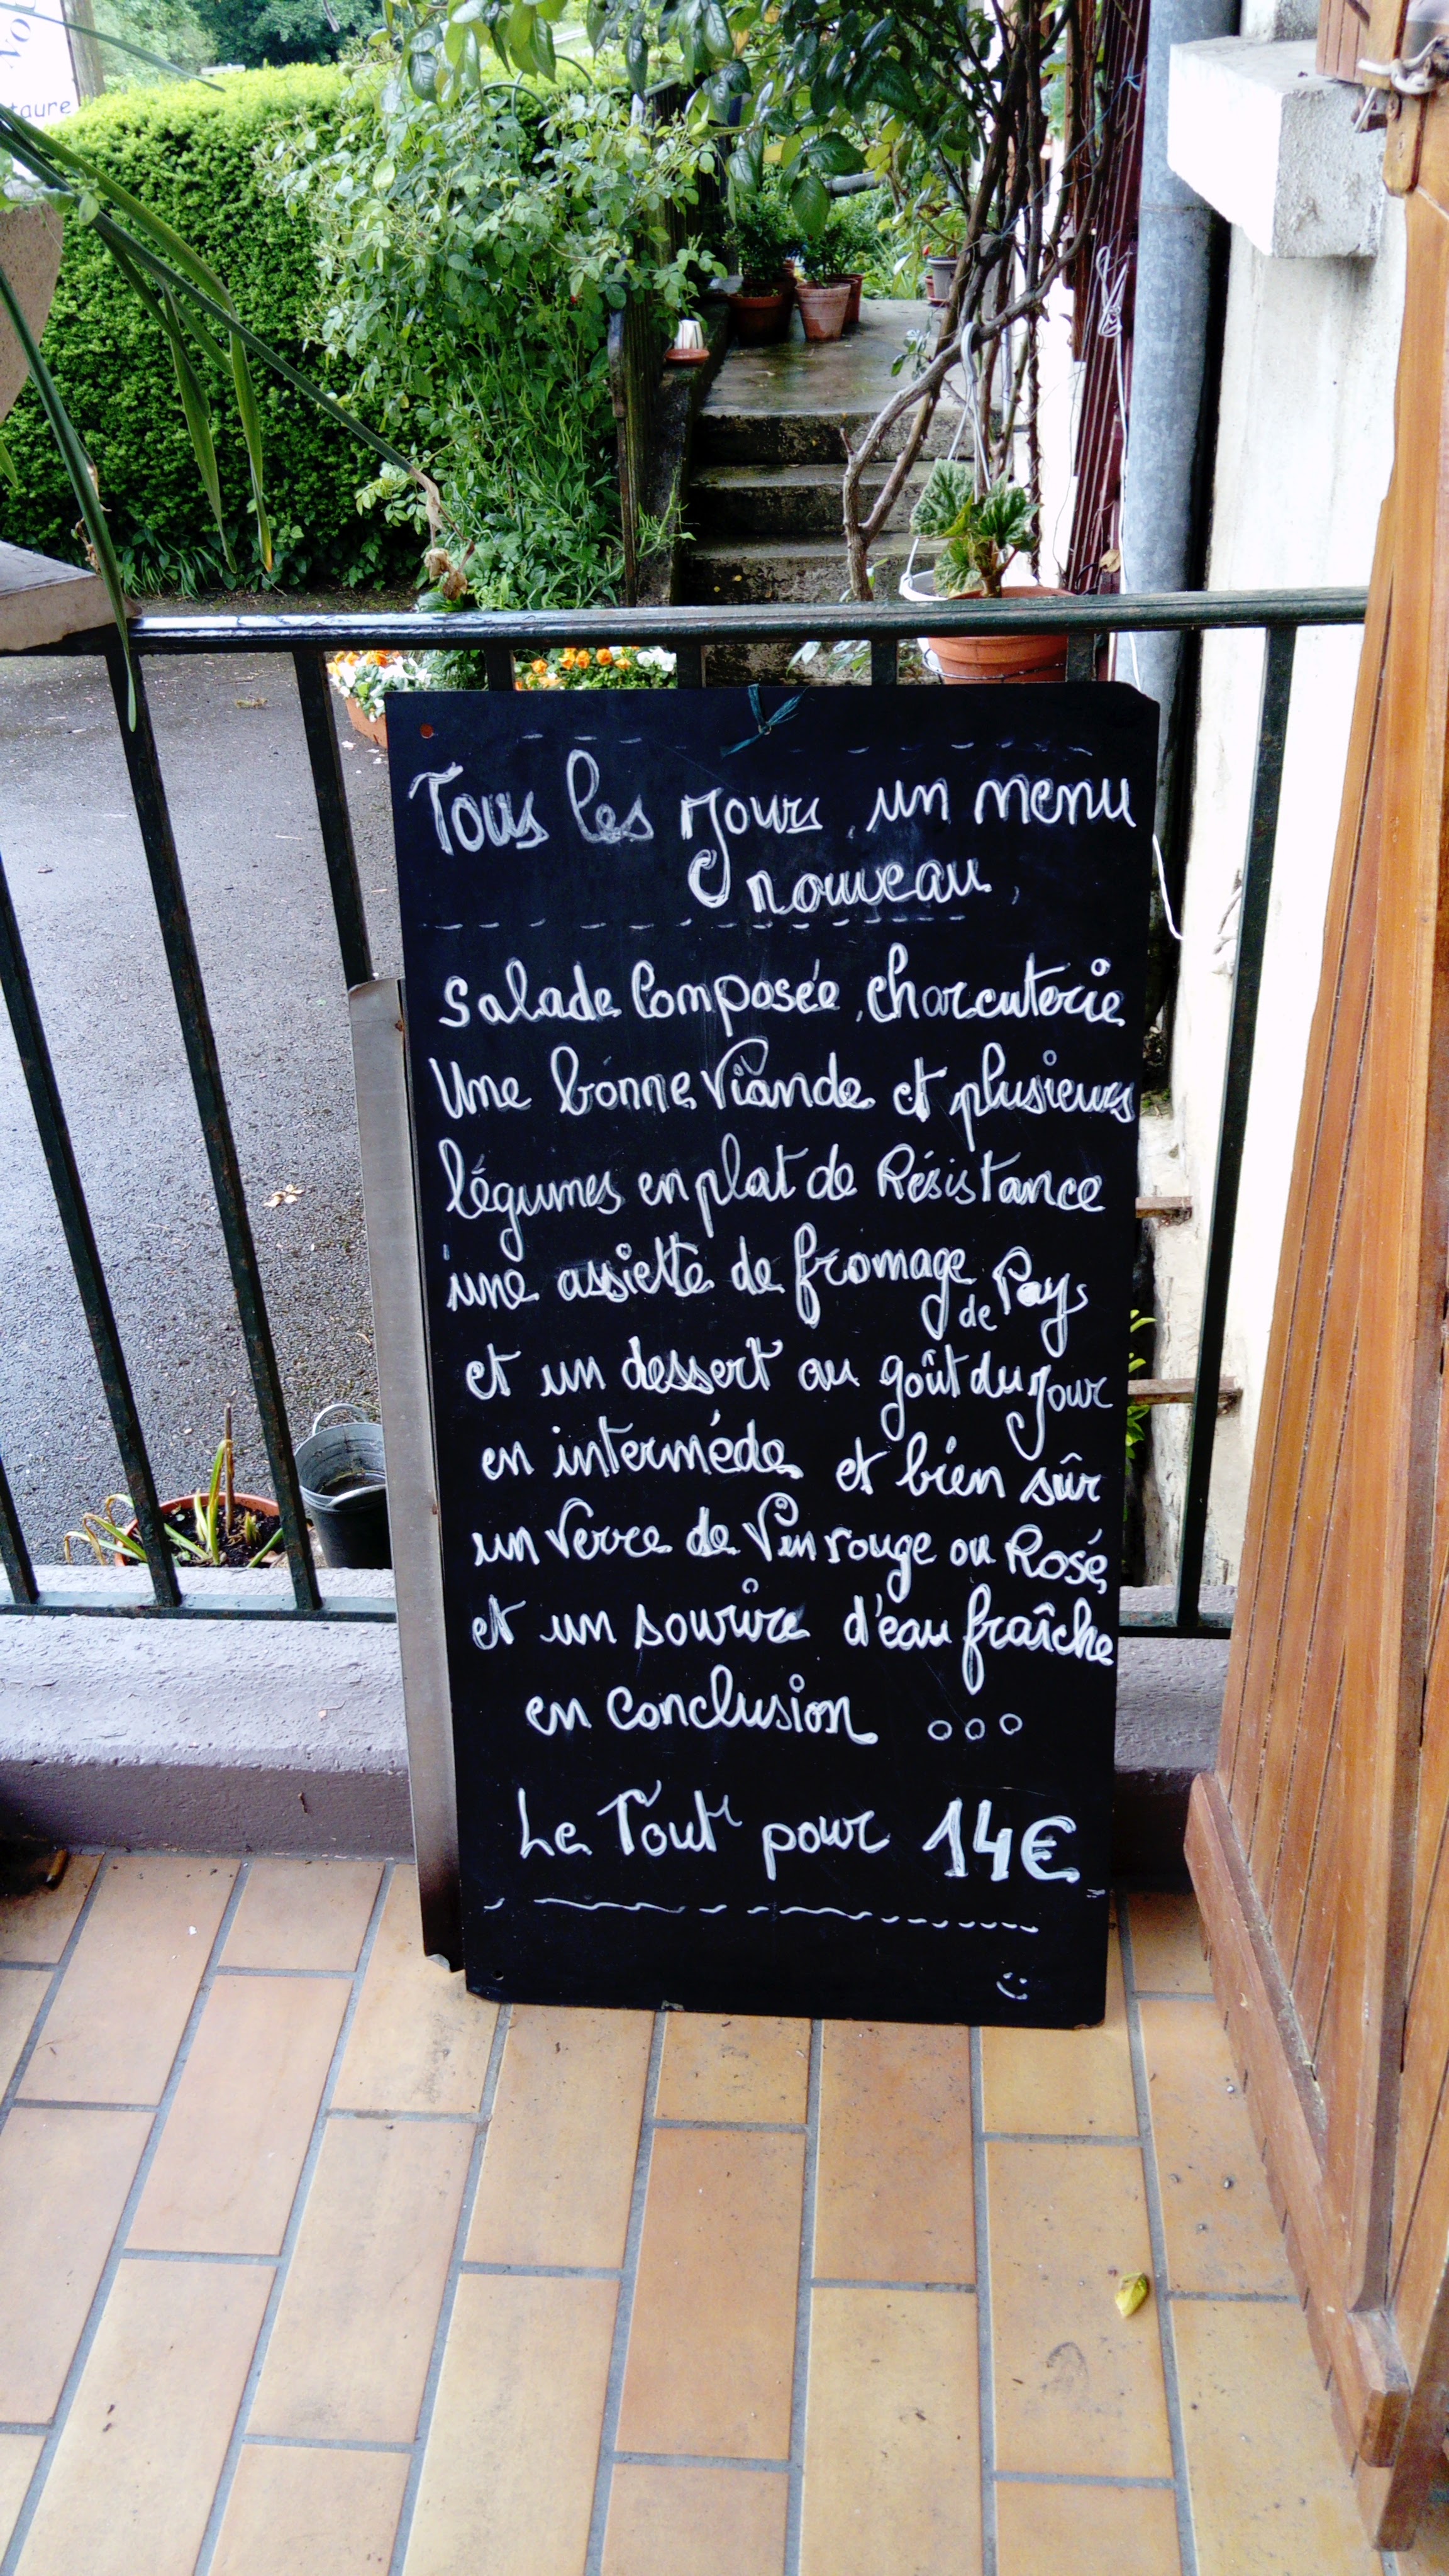 taure
Tous les jours, un menu
nouveau,
Salade Composée, charcuterie
Une bonne Viande et plusieurs
légumes en plat de Résistance
une assiette de fromage de Pays
et un dessert au goût du jour
en interméde et bien sûr
un Verre de Vin rouge ou Rosé,
et un sourire d'eau fraîche
en conclusion ...
Le Tout pour 14€